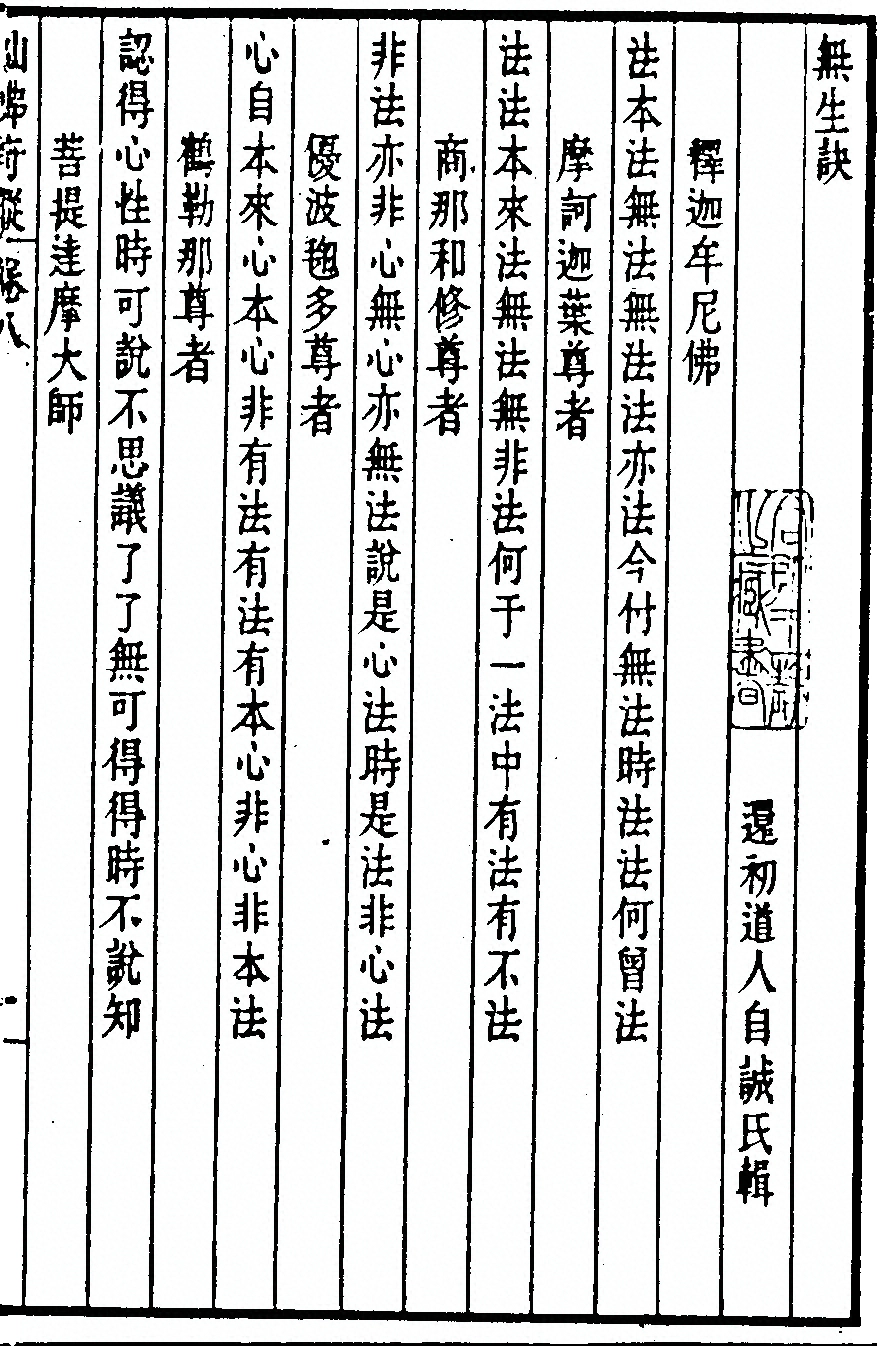 無生訣
還初道人自誠氏輯
釋迦牟尼佛
法本法無法無法法亦法今付無法時法法何曾法
摩訶迦葉尊者
法法本來法無法無非法何于一法中有法有不法
商那和修尊者
非法亦非心無心亦無法說是心法時是法非心法
優波毱多尊者
心自本來心本心非有法有法有本心非心非本法
鶴勒那尊者
認得心性時可說不思議了了無可得得時不說知
菩提達摩大師
卷八
一